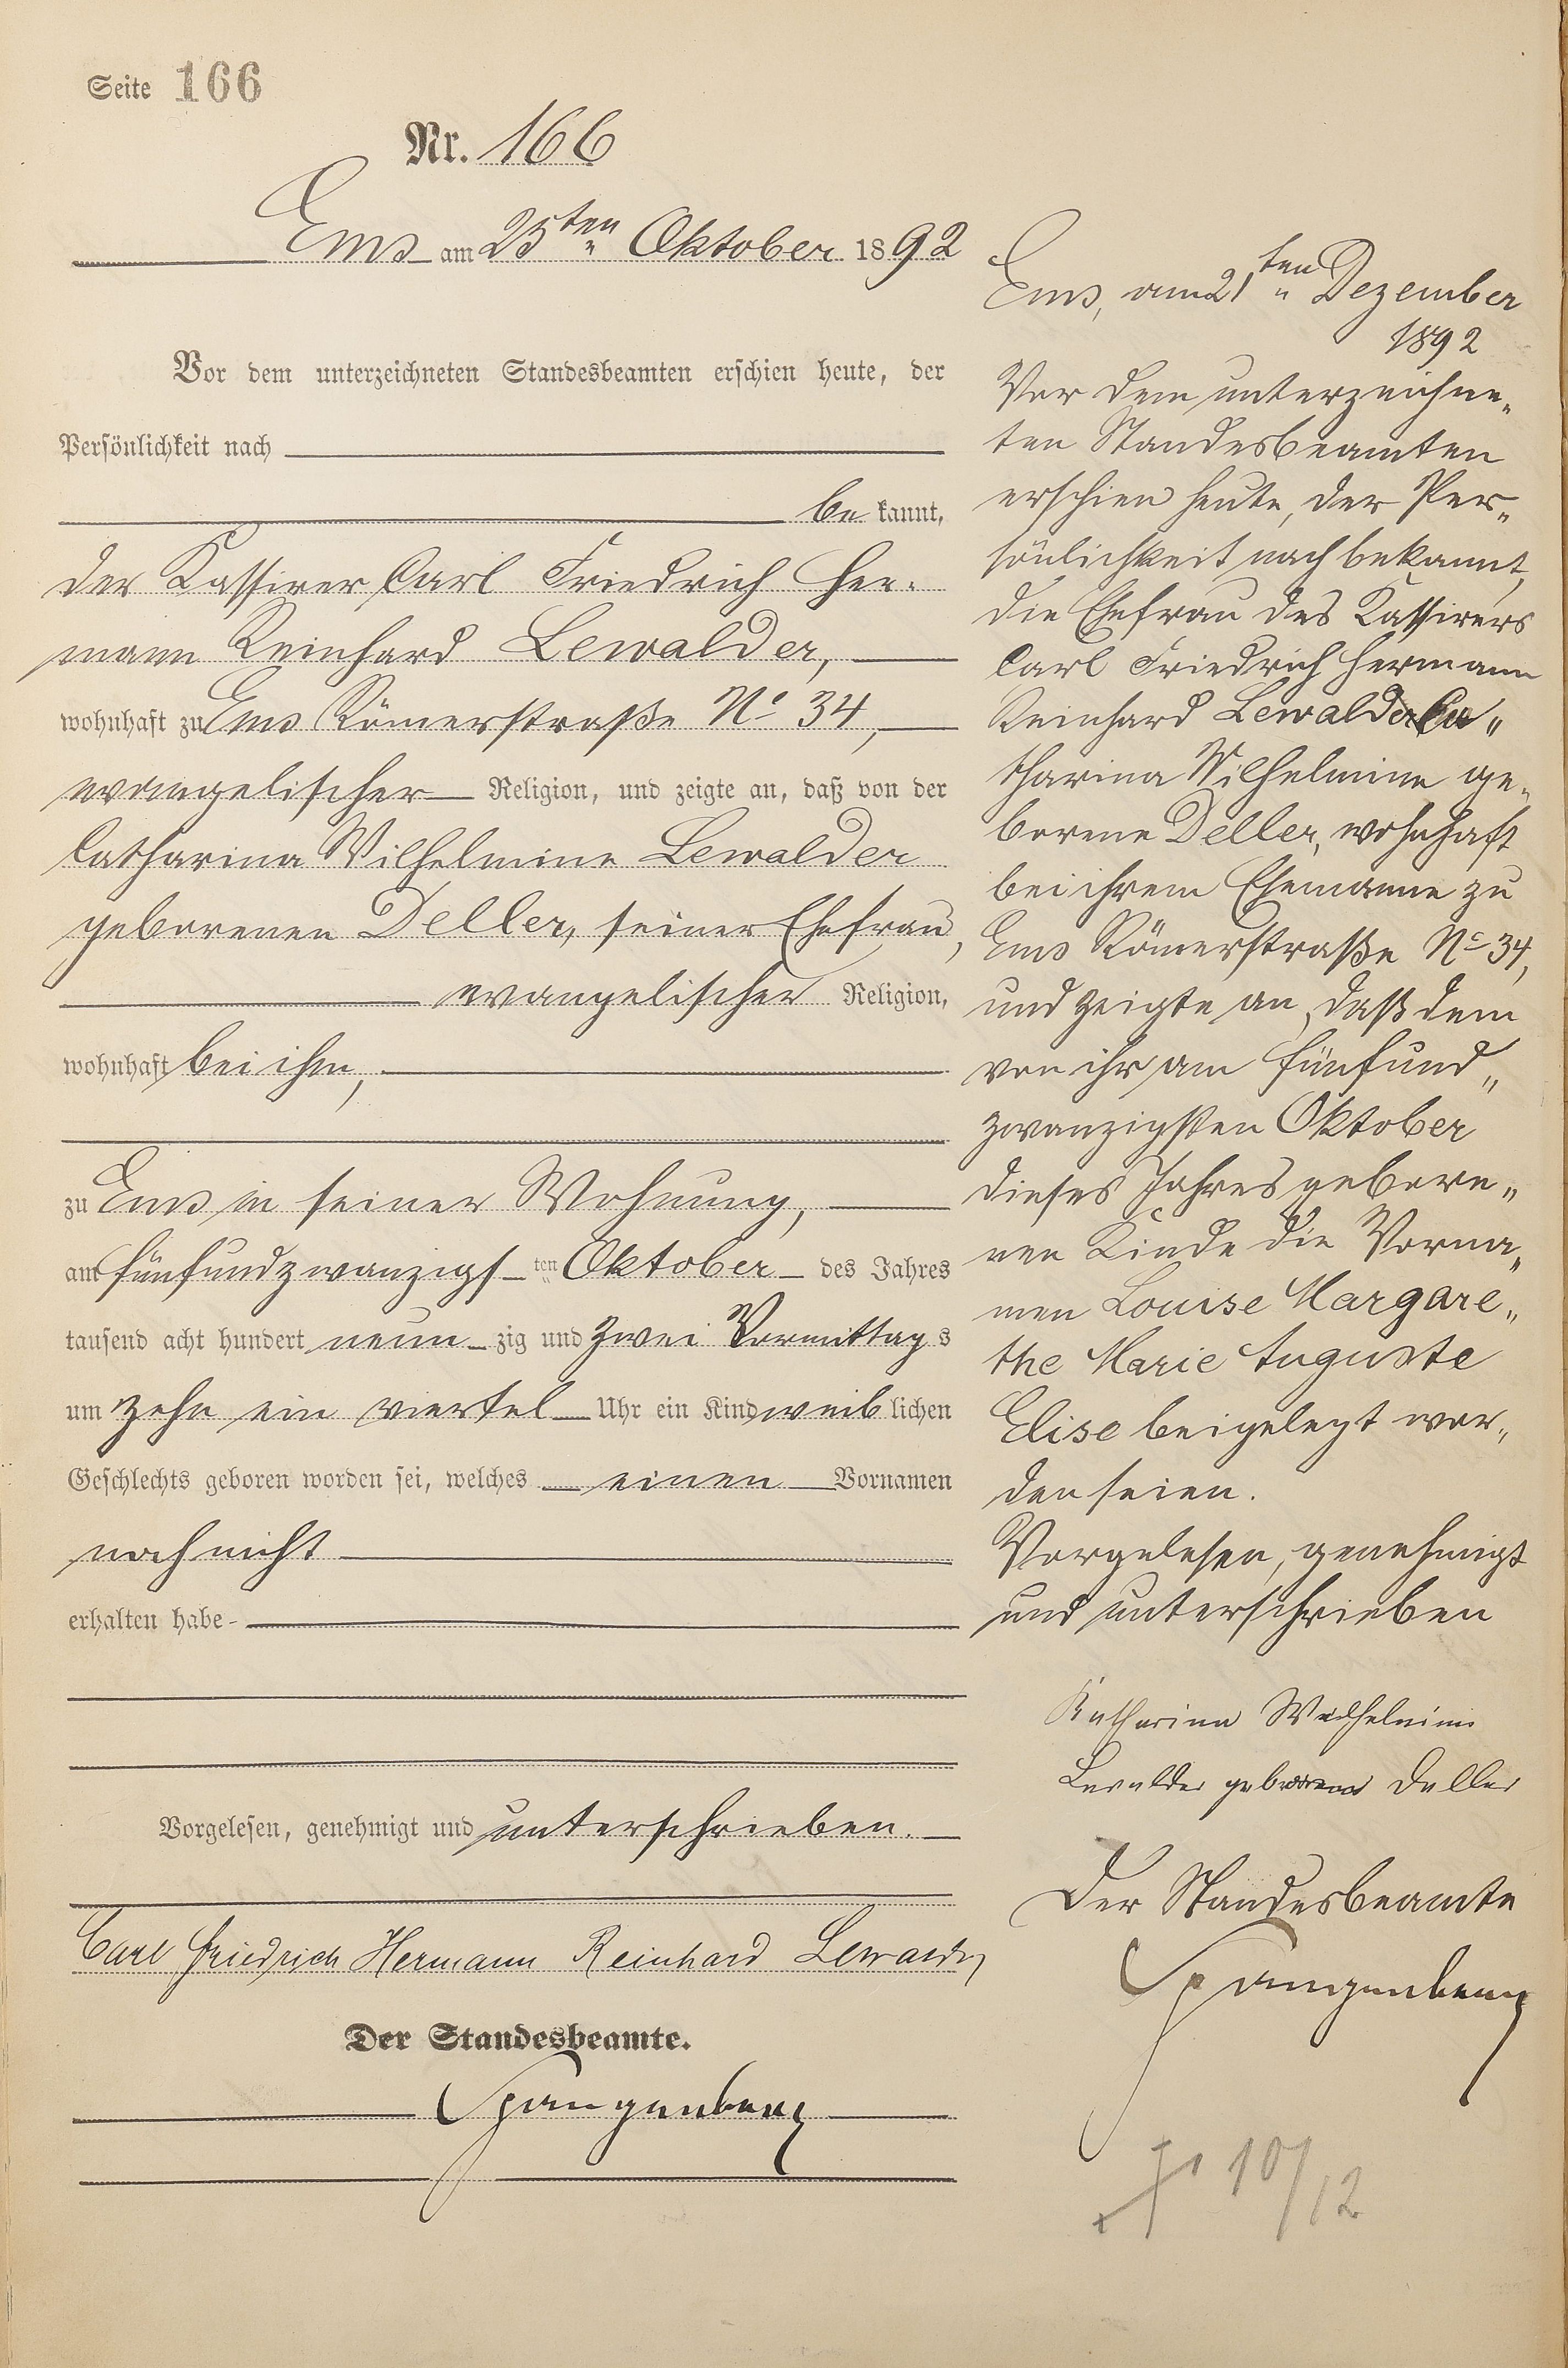 Seite 166
Nr. 166
Ems am 25ten Oktober 1892
Vor dem unterzeichneten Standesbeamten erschien heute, der
Persönlichkeit nach
be kannt,
der Kassirer Carl Friedrich Her-
mann Reinhard Lewalder,
wohnhaft zu Ems Römerstraße No 34,
evangelischer Religion, und zeigte an, daß von der
Catharina Wilhelmine Lewalder
geborenen Deller, seiner Ehefrau,
evangelischer Religion,
wohnhaft bei ihm,
zu Ems in seiner Wohnung,
am fünfundzwanzigs ten Oktober des Jahres
tausend acht hundert neun zig und zwei Vormittag s
um zehn ein viertel Uhr ein Kind weib lichen
Geschlechts geboren worden sei, welches einen Vornamen
noch nicht
erhalten habe
Vorgelesen, genehmigt und unterschrieben.
Carl Friedrich Hermann Reinhard Lewalder
Der Standesbeamte.
Spangenberg
Ems, am 21ten Dezember
1892
Vor dem unterzeichne-
ten Standesbeamten
erschien heute, der Per-
sönlichkeit nach bekannt,
die Ehefrau des Kassirers
Carl Friedrich Hermann
Reinhard Lewalder Ca-
tharina Wilhelmine ge-
borene Deller, wohnhaft
bei ihrem Ehemanne zu
Ems Römerstraße No 34,
und zeigte an, daß dem
von ihr am fünfund-
zwanzigsten Oktober
dieses Jahres gebore-
nen Kinde die Vorna-
men Louise Margare-
the Marie Auguste
Elise beigelegt wor-
den seien.
Vorgelesen, genehmigt
und unterschrieben
Katharina Wilhelmine
Lewalder geborene Deller
Der Standesbeamte
Spangenberg
10/12